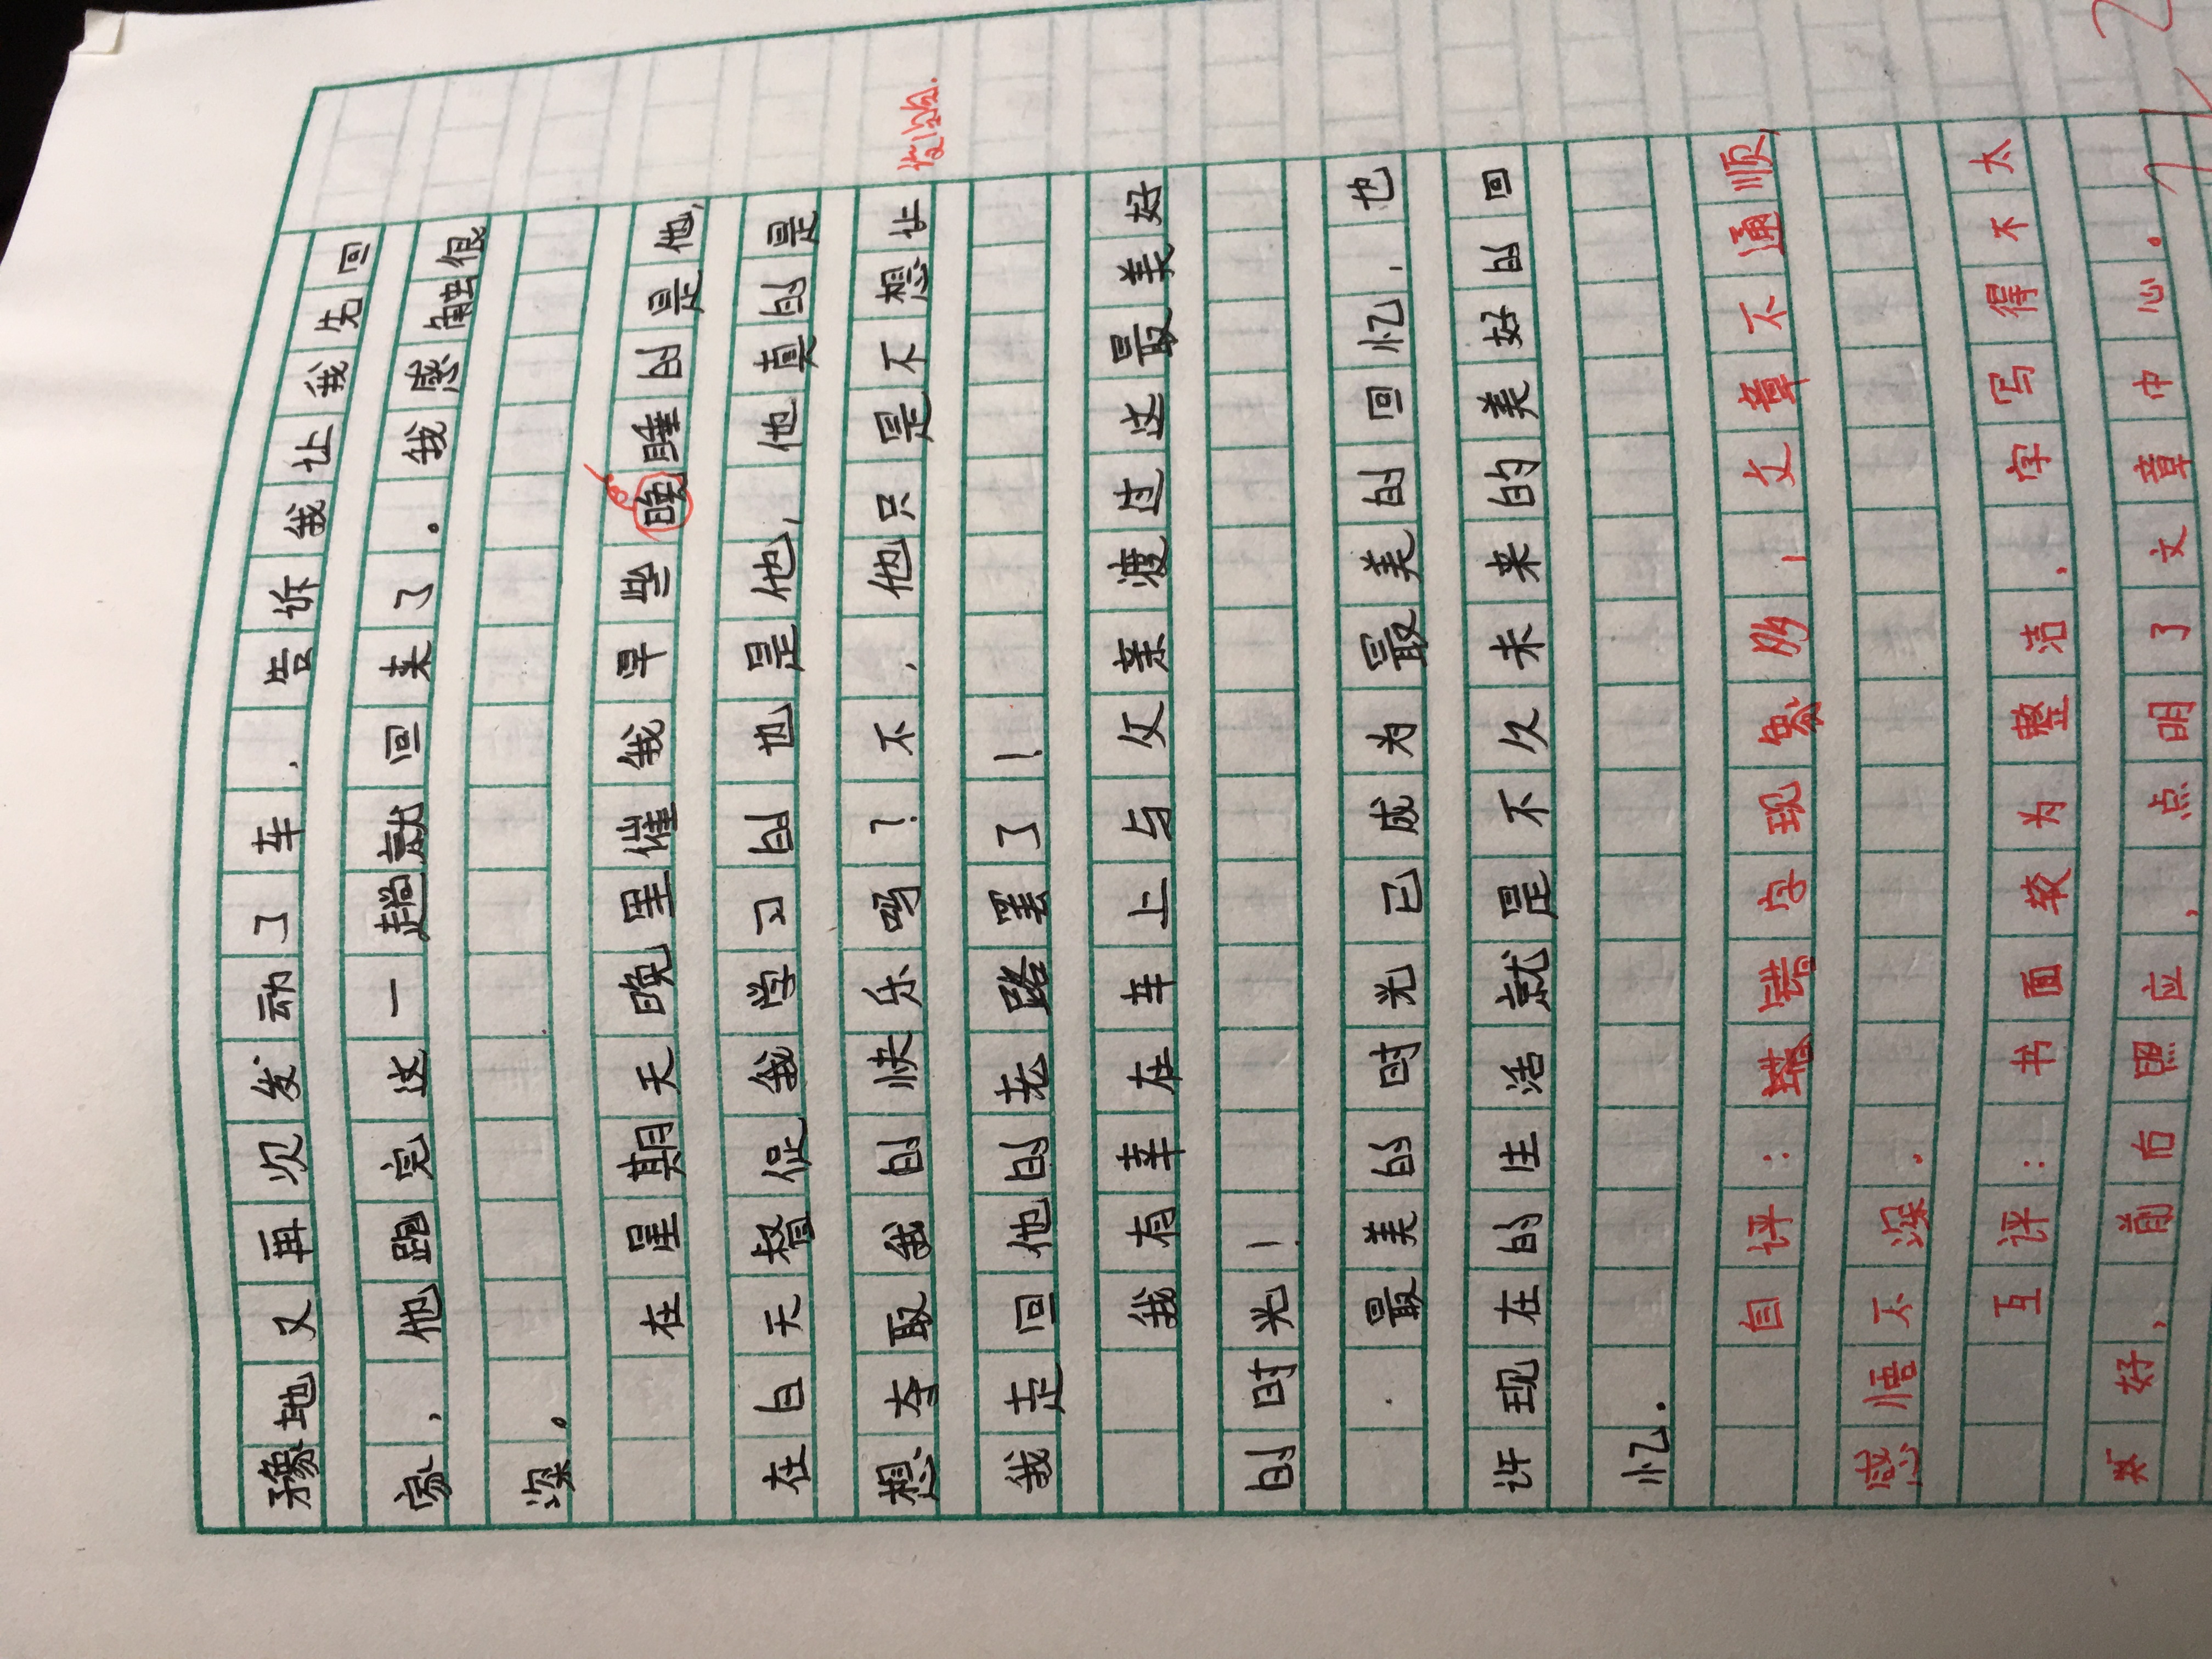 豫地又再次发动了车，告诉我让我先回
家，他跑完这一趟就回来了。我感触很
深。
在星期天晚里催我早些睡睡的是他，
在白天督促我学习的也是他，他真的是
想夺取我的快乐吗？不，他只是不想让
我走回他的老路罢了！
我有幸在车上与父亲渡过这最美好
的时光！
最美的时光已成为最美的回忆，也
许现在的生活就是不久未来的美好的回
忆。
自评：错字现象多，文章不通顺，
感悟不深。
互评：书面较为整洁，字写得不太
好，前后照应，点明了文章中心。